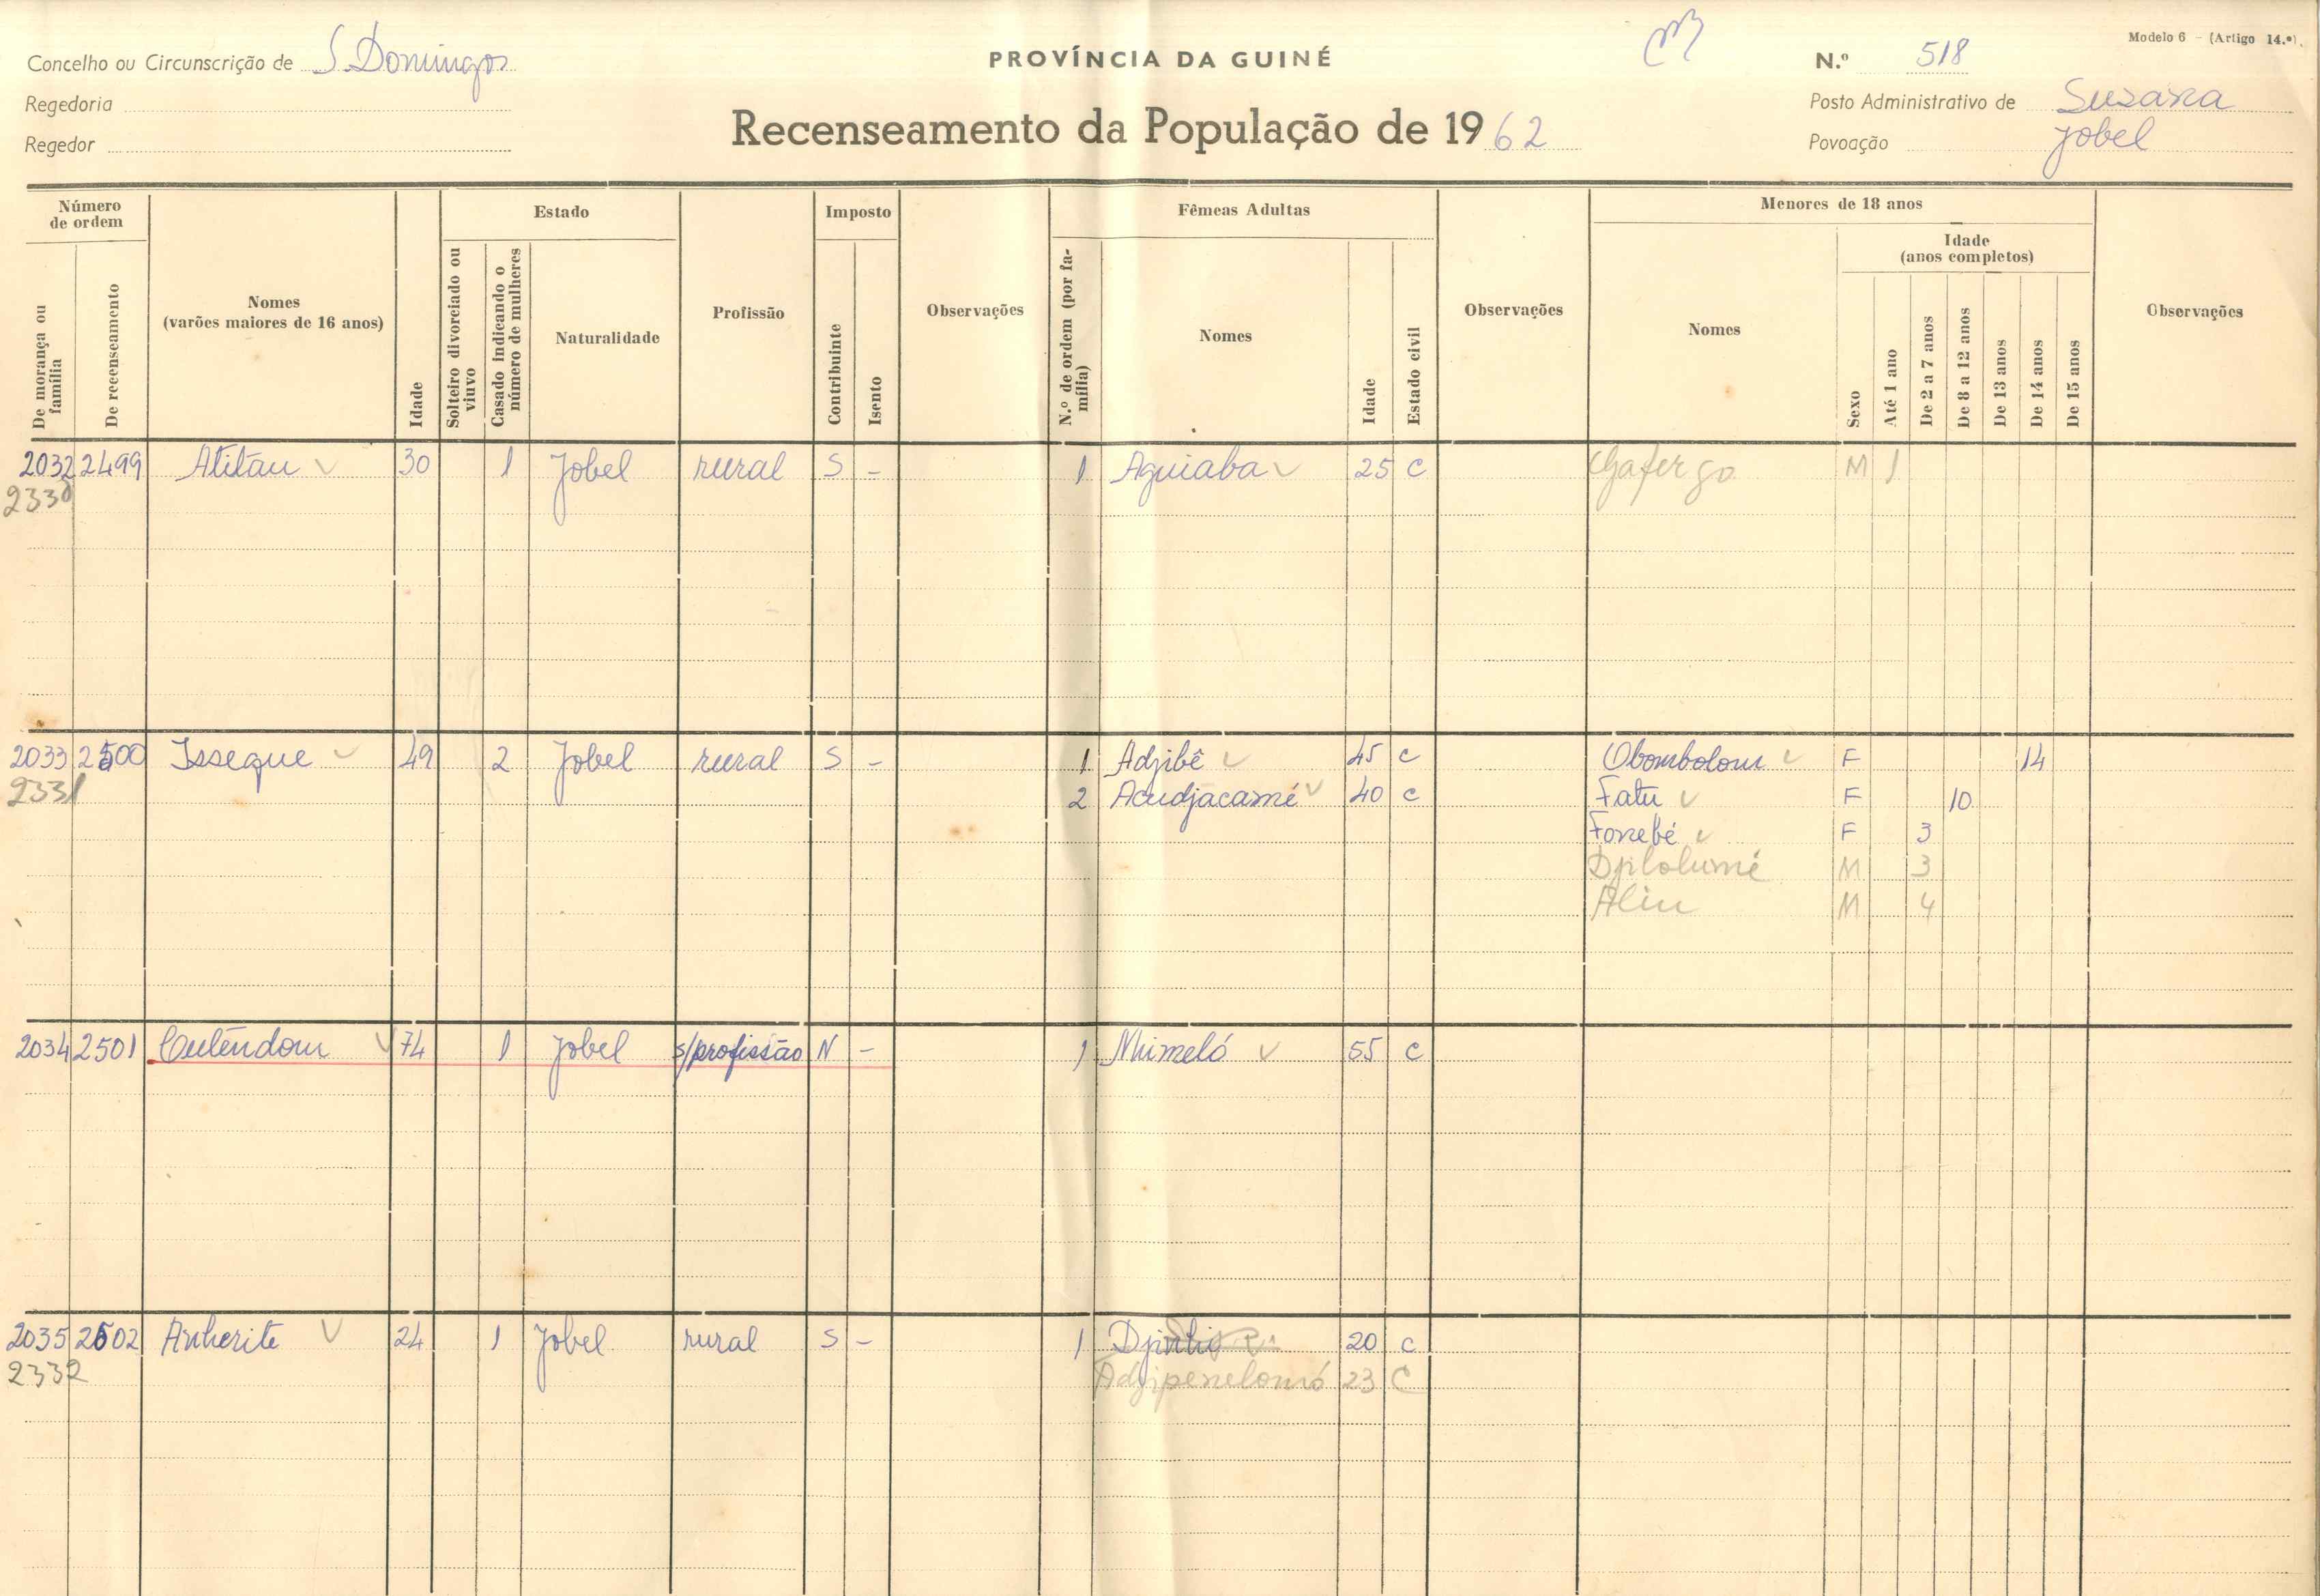 Modelo 6 - (Artigo 14.º).
Concelho ou Circunscrição de S. Domingos
PROVÍNCIA DA GUINÉ
N.º 518
Regedoria
Posto Administrativo de Suzana
Regedor
Recenseamento da População de 1962
Povoação Jobel
Número de ordem
Estado
Imposto
Fêmeas Adultas
Menores de 18 anos
Idade (anos completos)
De morança ou família
De recenseamento
Nomes (varões maiores de 16 anos)
Idade
Solteiro divorciado ou viuvo
Casado indicando o número de mulheres
Naturalidade
Profissão
Contribuinte
Isento
Observações
N.º de ordem (por família)
Nomes
Idade
Estado civil
Observações
Nomes
Sexo
Até 1 ano
De 2 a 7 anos
De 8 a 12 anos
De 13 anos
De 14 anos
De 15 anos
Observações
2032 2499 Atitau 30 1 Jobel rural S - 1 Aguiaba 25 C M 1
2330
2033 2500 Issegue 49 2 Jobel rural S - 1 Adjibê 45 C Obombolom F 14
2331 2 Acudjacamé 40 C Fatu F 10
Fonebé F 3
Djilolumé M 3
Aliu M 4
2034 2501 Culéndom 74 1 Jobel s/profissão N - 1 Nhimeló 55 C
2035 2502 Anherite 24 1 Jobel rural S - 1 20 C
2332 Adjipenelomó 23 C